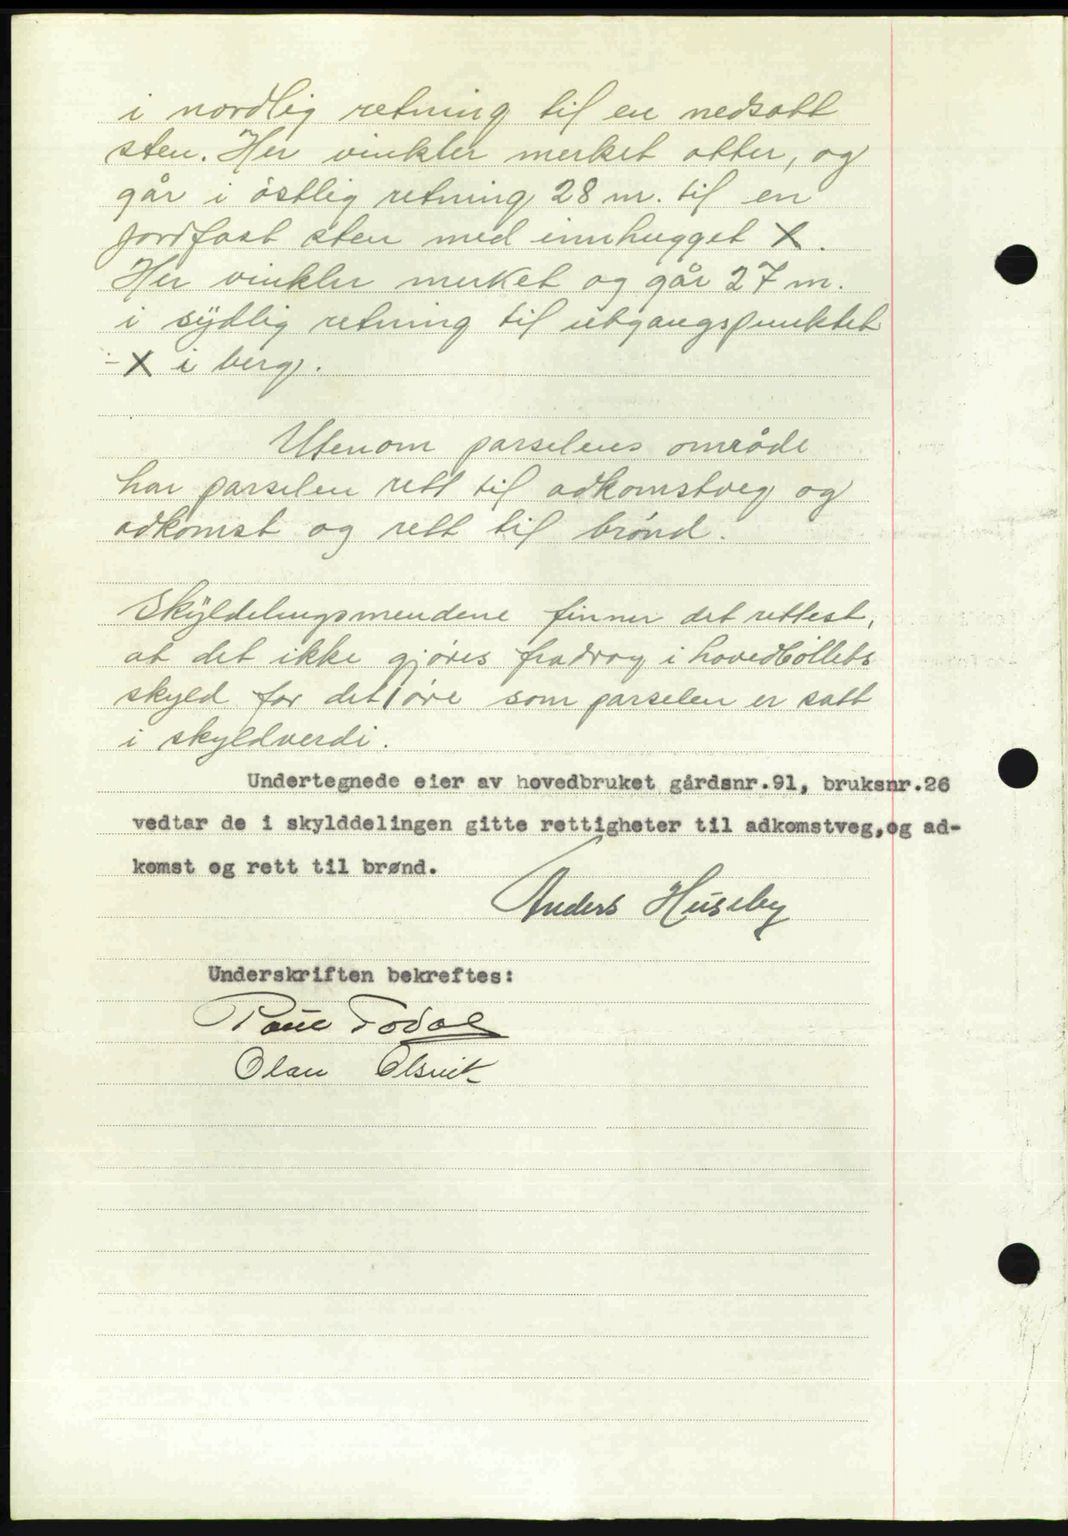 i nordlig retning til en nedsatt
sten. Her vinkler merket atter, og
går i östlig retning 28 m. til en
jordfast sten med innhugget X.
Her vinkler merket og går 27 m.
i sÿdlig retning til utgangspunktet
- X i berg.
Utenom parselens område
har parselen rett til adkomstveg og
adkomst og rett til brönd.
Skÿldelingsmendene finner det rettest,
at det ikke gjöres fradrag i hovedböllets
skyld for det 1 öre som parselen er satt
i skyldverdi.
Undertegnede eier av hovedbruket gårdsnr.91, bruksnr.26
vedtar de i skylddelingen gitte rettigheter til adkomstveg,og ad-
komst og rett til brønd.
Anders Huseby
Underskriften bekreftes:
Paul Todal
Olau Olsvik